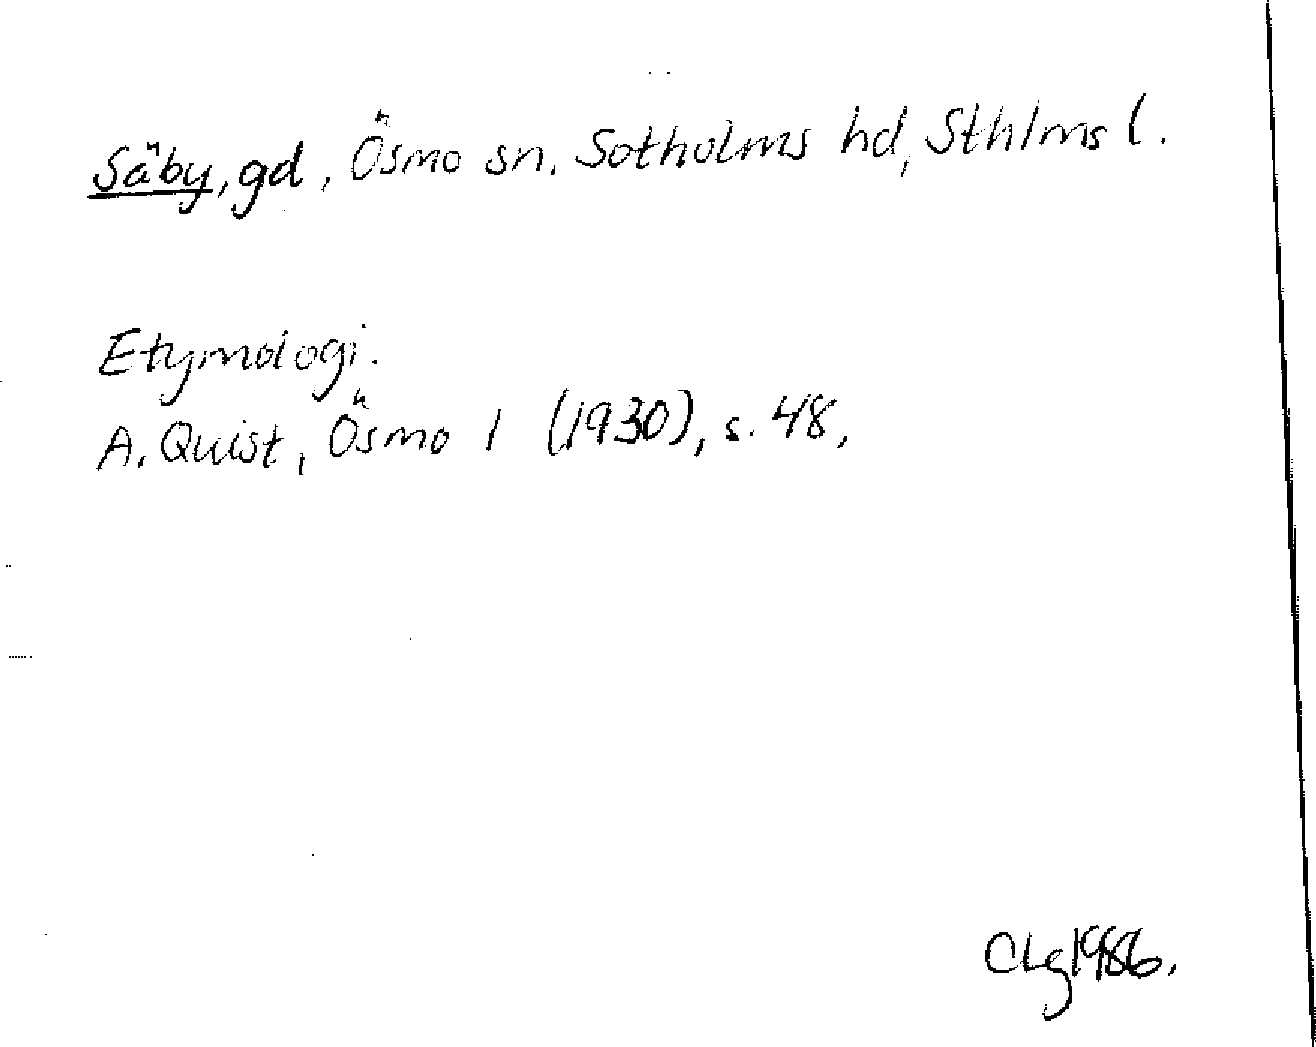 Säby, gd, Ösmo sn. Sotholms hd, Sthlms l.
Etymologi.
A. Quist, Ösmo 1 (1930), s. 48.
CLg 1986.